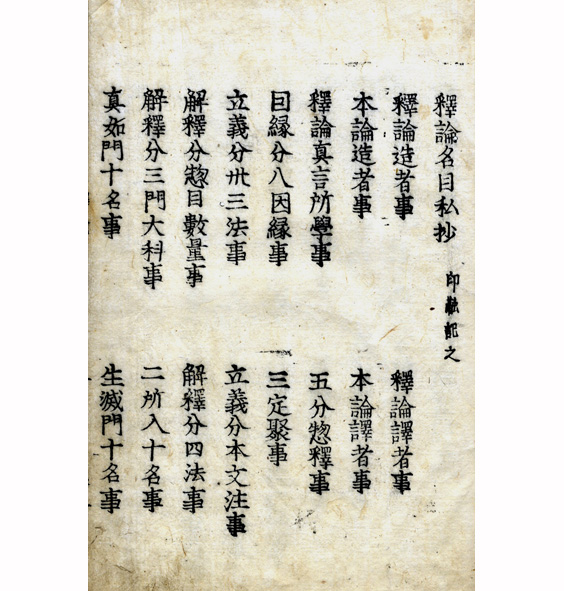 釋論名目私抄 印融記之
釋論造者事 釋論譯者事
本論造者事 本論譯者事
釋論真言所學事 五分惣釋事
因縁分八因縁事 三定聚事
立義分卅三法事 立義分本文注事
解釋分惣目數量事 解釋分四法事
解釋分三門大科事 二所入十名事
真如門十名事 生滅門十名事